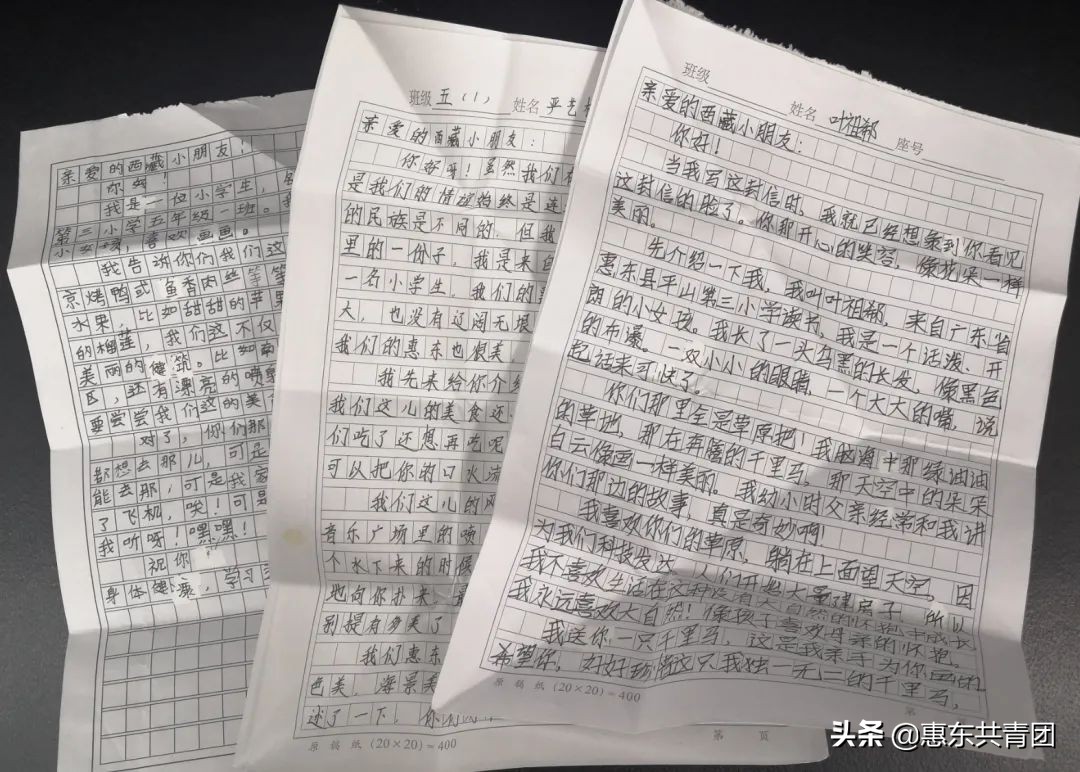 亲爱的西藏小朋友：
你好！
我是一位小学生，
第三小学五年级一班。我
喜欢画画。
我告诉你们我们这
京烤鸭或鱼香肉丝等等
水果，比如甜甜的苹果
的榴莲，我们这不仅
美丽的健筑。比如
区，还有漂亮的喷泉
要尝尝我们这的美
对了，你们那
都想去那儿，可是
能去那，可是我家
了飞机，唉！可是
我听呀！嘿嘿！
祝你
身体健康，学习
班级 五（1） 姓名 平艺
亲爱的西藏小朋友：
你好呀！虽然我们
是我们的情谊始终是连
的民族是不同的，但我
里的一份子，我是来自
一名小学生，我们的
大，也没有辽阔无垠
我们的惠东也很美，
我先来给你介绍
我们这儿的美食还
们吃了还想再吃呢
可以把你的口水流
我们这儿的风
音乐广场里的喷
个水下来的时候
地向你扑来，
别提有多美了
我们惠东
色美，海景美
述了一下！你
原稿纸（20×20）=400
第 页
班级
姓名 叶祖郗 座号
亲爱的西藏小朋友：
你好！
当我写这封信时，我就已经想象到你看见
这封信的脸了。你那开心的笑容，像花朵一样
美丽。
先介绍一下我，我叫叶祖郗，来自广东省
惠东县平山第三小学读书。我是一个活泼、开
朗的小女孩。我长了一头乌黑的长发，像黑色
的布瀑。一双小小的眼睛，一个大大的嘴，说
起话来可快了。
你们那里全是草原把！我脑海中那绿油油
的草地，那在奔腾的千里马，那天空中的朵朵
白云像画一样美丽。我幼小时父亲经常和我讲
你们那边的故事，真是奇妙啊！
我喜欢你们的草原，躺在上面望天空。因
为我们科技发达，人们开始大量建房子，所以
我不喜欢生活在这种没有大自然的怀抱中成长
我永远喜欢大自然！像孩子喜欢母亲的怀抱。
我送你一只千里马，这是我亲手为你画的
希望你，好好珍惜这只我独一无二的千里马，
原稿纸（20×20）=400
第
头条 @惠东共青团